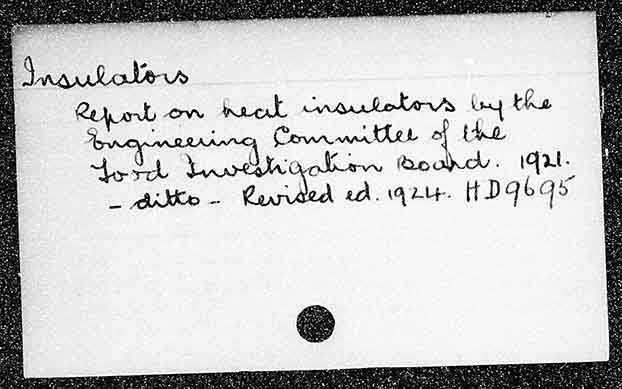 Insulators
Report on heat insulators by the
Engineering Committee of the
Food Investigation Board. 1921.
- ditto - Revised ed. 1924. HD9695